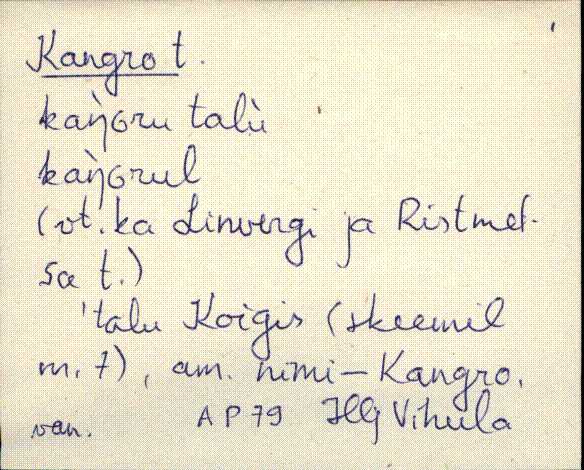 Kangro t.
kaŋ̀ɢru talù
kaŋ̀ɢrul
(vt. ka Linvergi ja Ristmet-
sa t.)
'talu Koigis (skeemil
m. 7), am. nimi – Kangro,
van. AP79 Hlj Vihula